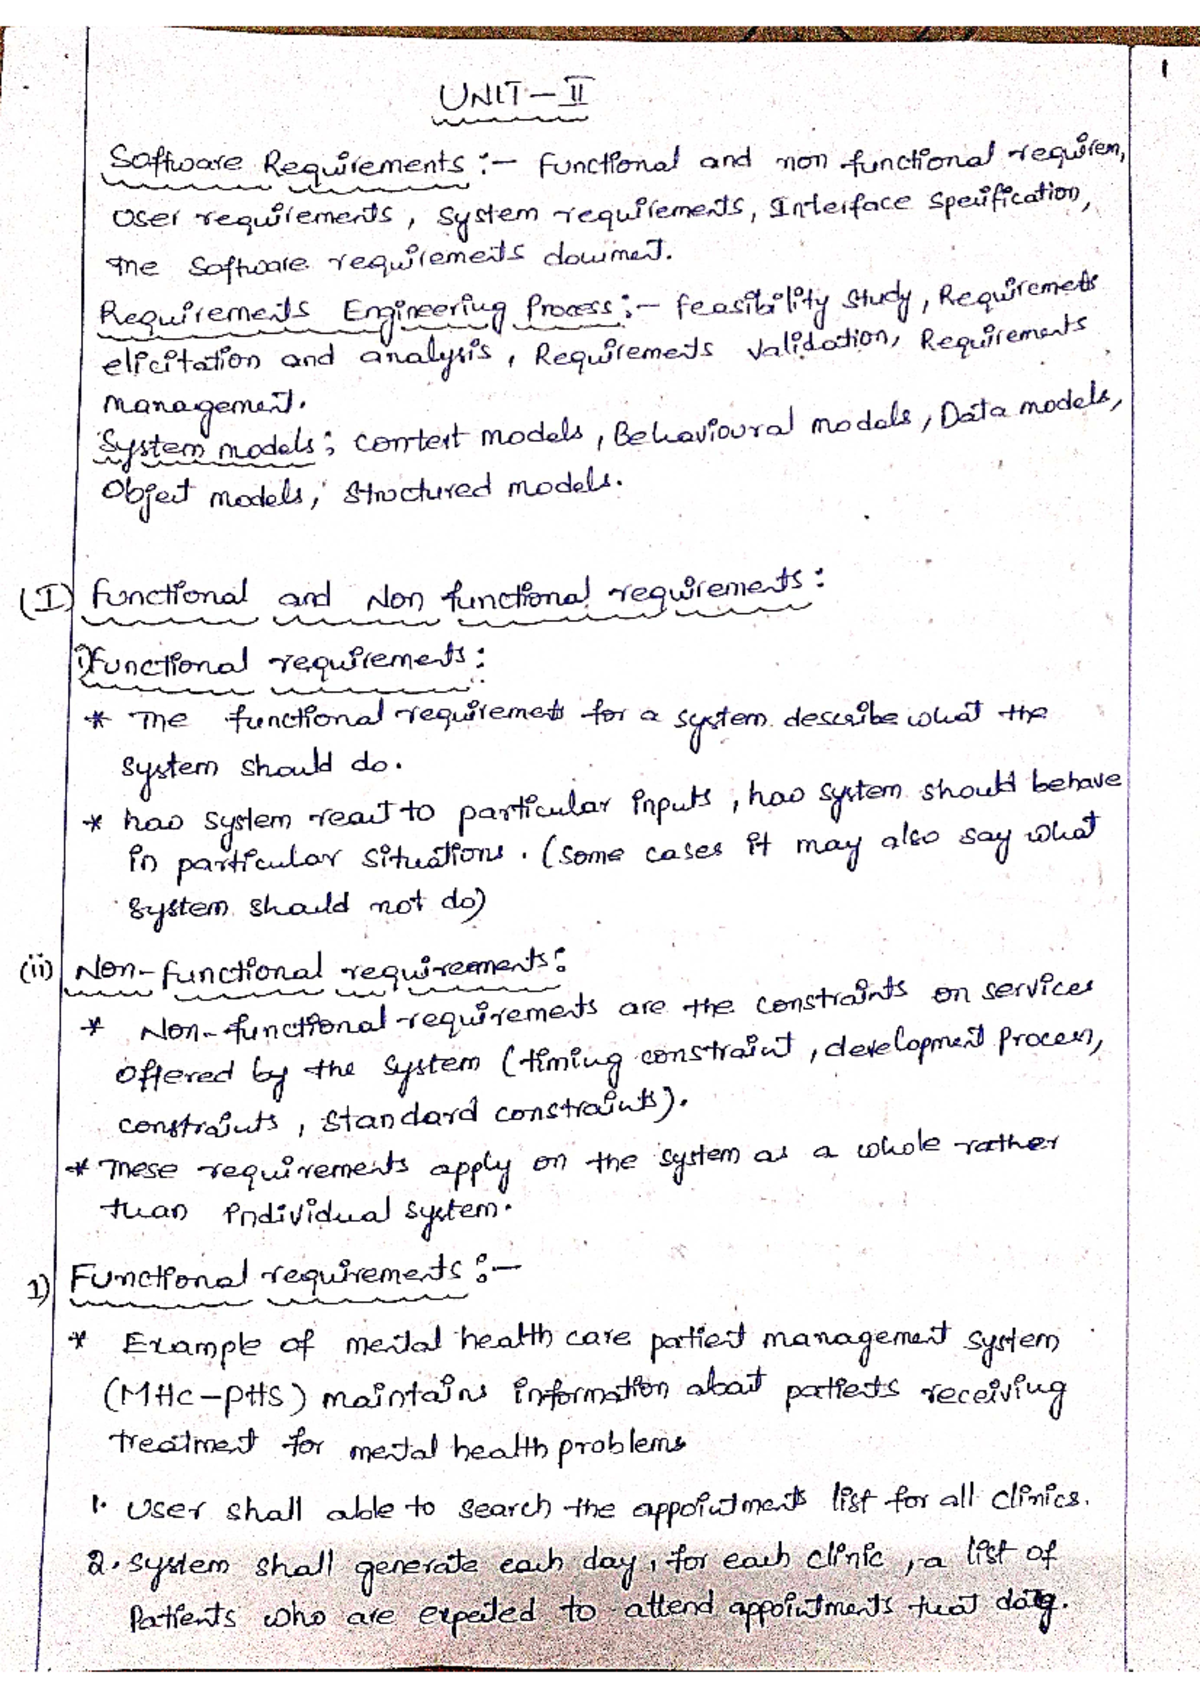 1
UNIT-II
Software Requirements :- Functional and non functional requirem,
User requirements, System requirements, Interface Specification,
The Software requirements document.
Requirements Engineering Process:- Feasibility Study, Requirements
elicitation and analysis, Requirements Validation, Requirements
management.
System models: Context models, Behavioural models, Data models,
Object models, Structured models.
(I) Functional and Non functional requirements:
i) Functional requirements:
* The functional requirements for a system describe what the
system should do.
* how system react to particular inputs, how system should behave
in particular situations. (some cases it may also say what
system should not do)
(ii) Non-functional requirements:
* Non-functional requirements are the constraints on services
offered by the system (timing constraint, development process,
constraints, standard constraints).
* These requirements apply on the system as a whole rather
than individual system.
1) Functional requirements :-
* Example of mental health care patient management system
(MHC-PHS) maintains information about patients receiving
treatment for mental health problems
1. User shall able to search the appointments list for all clinics.
2. system shall generate each day, for each clinic, a list of
Patients who are expected to attend appointments that day.